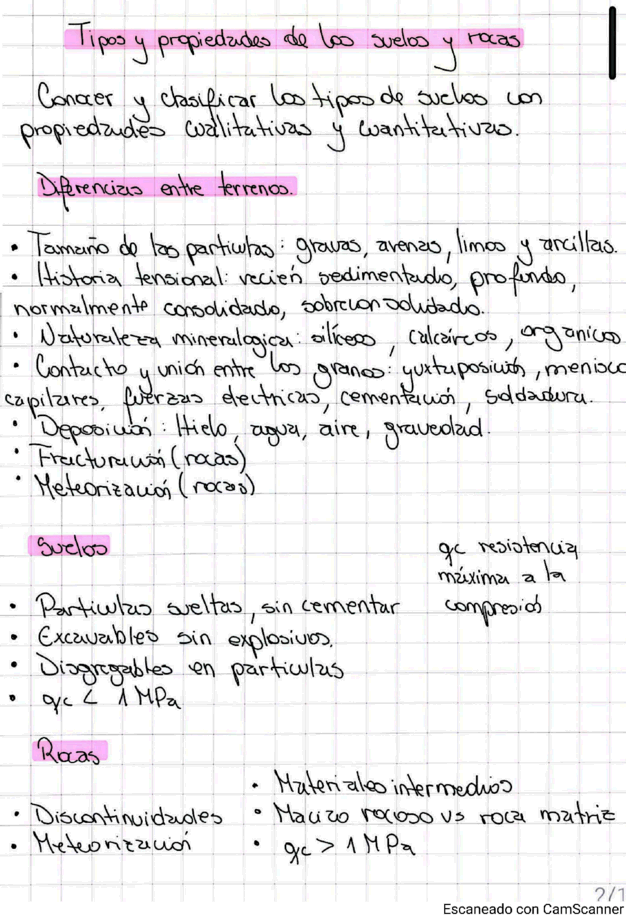 Tipos y propiedades de los suelos y rocas
Conocer y clasificar los tipos de suelos con
propiedades cualitativas y cuantitativas.
Diferencias entre terrenos.
• Tamaño de las particulas: gravas, arenas, limos y arcillas.
• Historia tensional: recién sedimentado, profundo,
normalmente consolidado, sobreconsolidado.
• Naturaleza mineralogica: silíceos, calcáreos, organicos
• Contacto y unión entre los granos: yuxtuposición, menisco
capilares, fuerzas electricas, cementación, soldadura.
• Deposición: Hielo, agua, aire, gravedad.
• Fracturación (rocas)
• Meteorización (rocas)
Suelos
qc resistencia
máxima a la
compresión
• Particulas sueltas, sin cementar
• Excavables sin explosivos.
• Disgregables en particulas
• qc < 1 MPa
Rocas
• Materiales intermedios
• Discontinuidades
• Macizo rocoso vs roca matriz
• Meteorización
• qc > 1 MPa
2/1
Escaneado con CamScanner